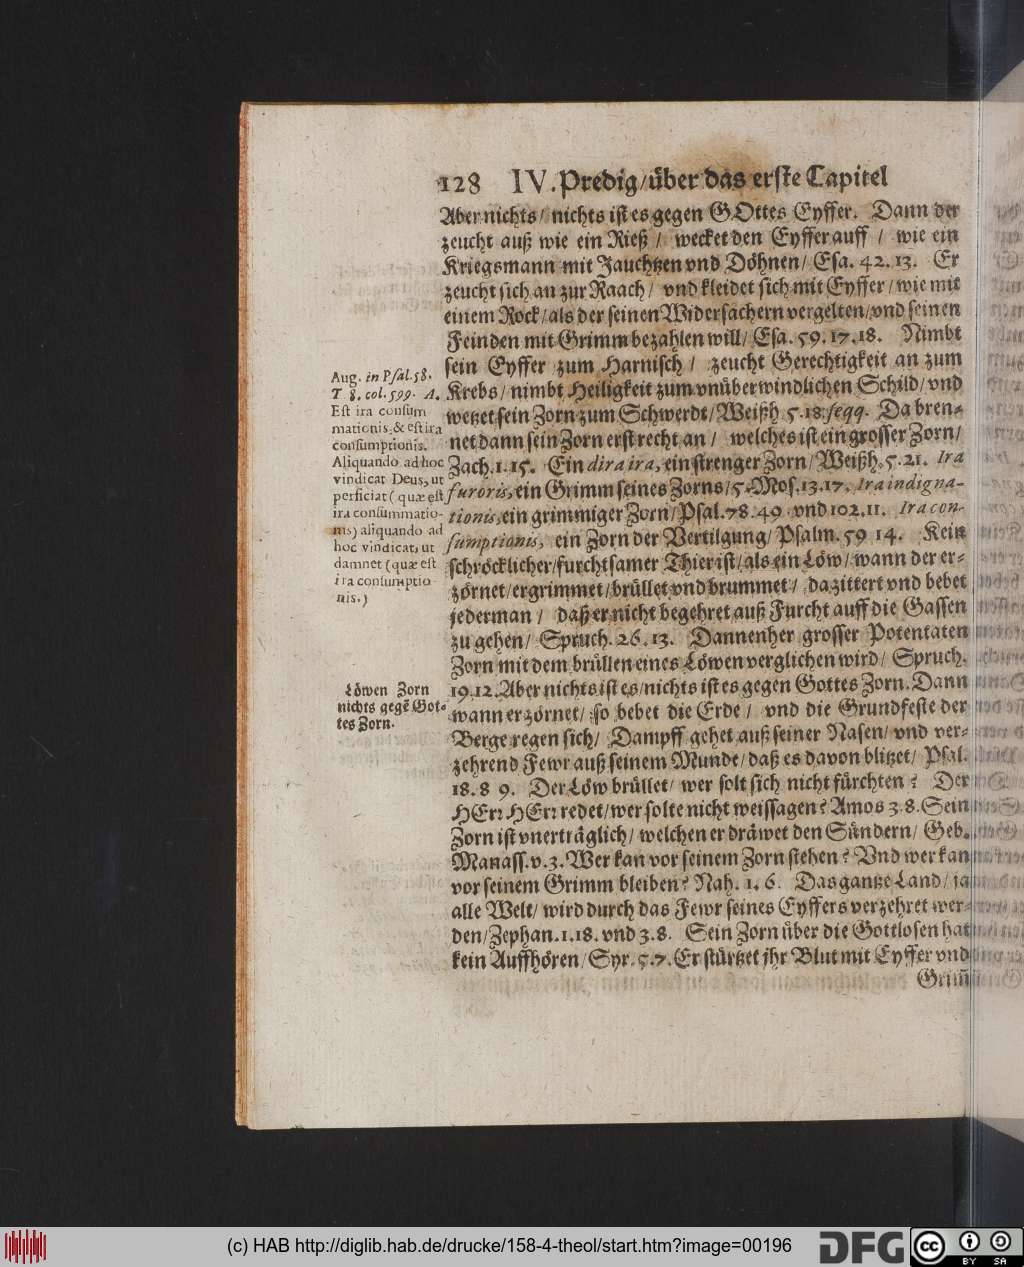 128 IV. Predig/ über das erste Capitel
Aber nichts/ nichts ist es gegen GOttes Eyffer. Dann der
zeucht auß wie ein Rieß / wecket den Eyffer auff / wie ein
Kriegsmann mit Jauchtzen vnd Döhnen/ Esa. 42. 13. Er
zeucht sich an zur Raach/ vnd kleidet sich mit Eyffer / wie mit
einem Rock/ als der seinen Widersächern vergelten/ vnd seinen
Feinden mit Grimm bezahlen will/ Esa. 59. 17. 18. Nimbt
sein Eyffer zum Harnisch / zeucht Gerechtigkeit an zum
Krebs/ nimbt Heiligkeit zum vnüberwindlichen Schild/ vnd
wetzet sein Zorn zum Schwerdt/ Weißh 5. 18. seqq. Da bren-
net dann sein Zorn erst recht an / welches ist ein grosser Zorn/
Zach. 1. 15. Ein dira ira, ein strenger Zorn/ Weißh. 5. 21. Ira
furoris, ein Grimm seines Zorns/ 5. Mos. 13. 17. Ira indigna-
tionis, ein grimmiger Zorn/ Psal. 78. 49. vnd 102. 11. Ira con-
sumptionis, ein Zorn der Vertilgung/ Psalm. 59 14. Kein
schröcklicher/ furchtsamer Thier ist/ als ein Löw/ wann der er-
zörnet/ ergrimmet/ brüllet vnd brummet / da zittert vnd bebet
jederman / daß er nicht begehret auß Furcht auff die Gassen
zu gehen/ Spruch. 26. 13. Dannenher grosser Potentaten
Zorn mit dem brüllen eines Löwen verglichen wird/ Spruch.
19. 12. Aber nichts ist es/ nichts ist es gegen Gottes Zorn. Dann
wann er zörnet/ so bebet die Erde / vnd die Grundfeste der
Berge regen sich/ Dampff gehet auß seiner Nasen/ vnd ver-
zehrend Fewr auß seinem Munde/ daß es davon blitzet/ Psal.
18. 8 9. Der Löw brüllet/ wer solt sich nicht fürchten? Der
HErr HErr redet/ wer solte nicht weissagen? Amos 3. 8. Sein
Zorn ist vnerträglich/ welchen er dräwet den Sündern/ Geb.
Manass. v. 3. Wer kan vor seinem Zorn stehen? Vnd wer kan
vor seinem Grimm bleiben? Nah. 1. 6. Das gantze Land/ ja
alle Welt/ wird durch das Fewr seines Eyffers verzehret wer-
den/ Zephan. 1. 18. vnd 3. 8. Sein Zorn über die Gottlosen hat
kein Auffhören/ Syr. 5. 7. Er stürtzet jhr Blut mit Eyffer vnd
Grim̃
Aug. in Psal. 58.
T 8. col. 599. A.
Est ira consum
mationis, & est ira
consumptionis.
Aliquando ad hoc
vindicat Deus, ut
perficiat (quæ est
ira consummatio-
nis) aliquando ad
hoc vindicat, ut
damnet (quæ est
ira consumptio-
nis.)
Löwen Zorn
nichts gegẽ Got-
tes Zorn.
(c) HAB http://diglib.hab.de/drucke/158-4-theol/start.htm?image=00196
DFG
cc
BY SA